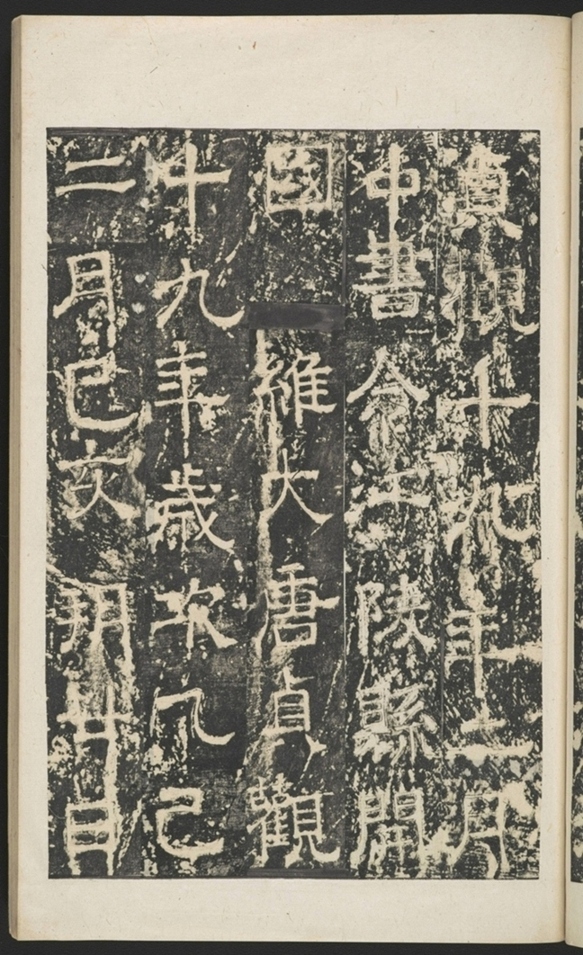 貞觀十九年二月
中書令江陵縣開
國　維大唐貞觀
十九年歲次乙巳
二月己亥朔廿日